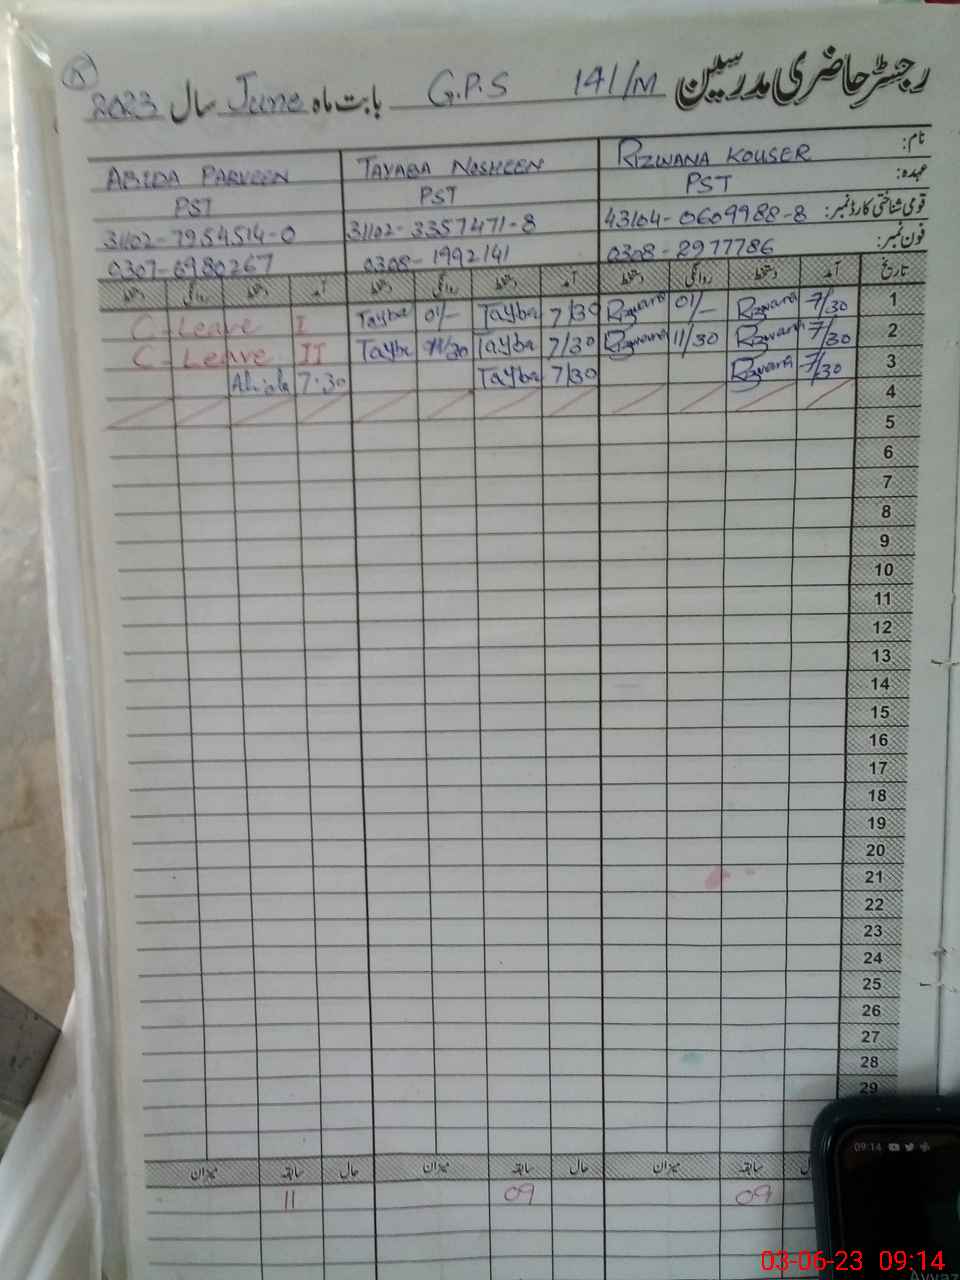 رجسٹر حاضری مدرسین 141/M G.P.S بابت ماہ June سال 2023
نام: RIZWANA KOUSER TAYABA NOSHEEN ABIDA PARVEEN
عہدہ: PST PST PST
قومی شناختی کارڈ نمبر: 43104-0609988-8 31102-3357471-8 31102-7954514-0
فون نمبر: 0308-2977786 0308-1992141 0307-6980267
تاریخ آمد دستخط روانگی دستخط آمد دستخط روانگی دستخط آمد دستخط روانگی دستخط
1 7/30 Rizwana 01/- Rizwana 7/30 Tayba 01/- Tayba C-Leave I
2 7/30 Rizwana 11/30 Rizwana 7/30 Tayba 11/30 Tayba C-Leave II
3 7/30 Rizwana 7/30 Tayba 7:30 Abida
4
5
6
7
8
9
10
11
12
13
14
15
16
17
18
19
20
21
22
23
24
25
26
27
28
29
حال سابقہ میزان حال سابقہ میزان حال سابقہ میزان
09 09 11
09:14
03-06-23 09:14